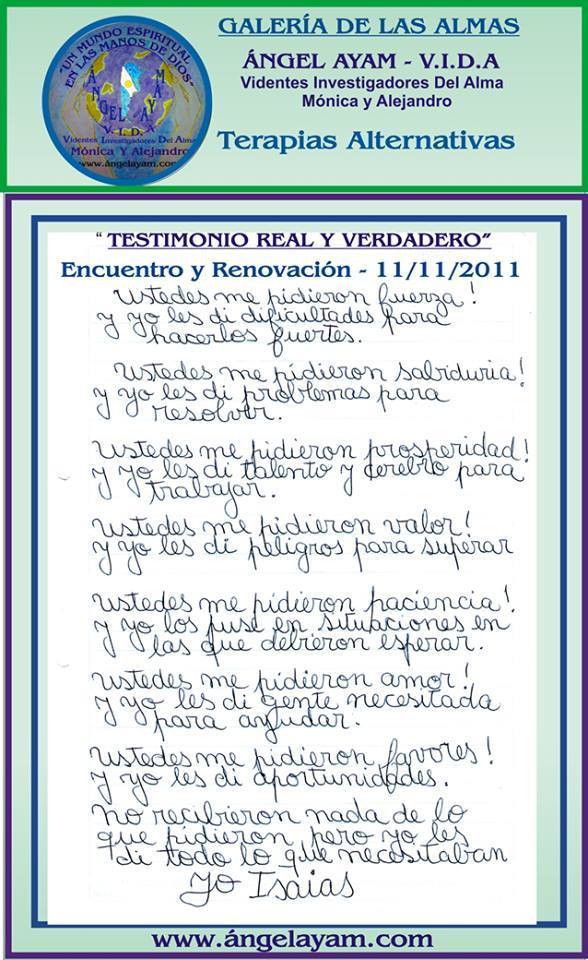 GALERÍA DE LAS ALMAS
"UN MUNDO ESPIRITUAL
EN LAS MANOS DE DIOS"
ÁNGEL AYAM
V.I.D.A
Videntes Investigadores Del Alma
Mónica Y Alejandro
www.ángelayam.com
ÁNGEL AYAM - V.I.D.A
Videntes Investigadores Del Alma
Mónica y Alejandro
Terapias Alternativas
“ TESTIMONIO REAL Y VERDADERO”
Encuentro y Renovación - 11/11/2011
Ustedes me pidieron fuerza!
y yo les di dificultades para
hacerlos fuertes.
Ustedes me pidieron sabiduria!
y yo les di problemas para
resolver.
Ustedes me pidieron prosperidad!
y yo les di talento y cerebro para
trabajar.
Ustedes me pidieron valor!
y yo les di peligros para superar
Ustedes me pidieron paciencia!
y yo los puse en situaciones en
las que debieron esperar.
Ustedes me pidieron amor!
y yo les di gente necesitada
para ayudar.
Ustedes me pidieron favores!
y yo les di oportunidades.
No recibieron nada de lo
que pidieron pero yo les
di todo lo que necesitaban
Yo Isaias
www.ángelayam.com